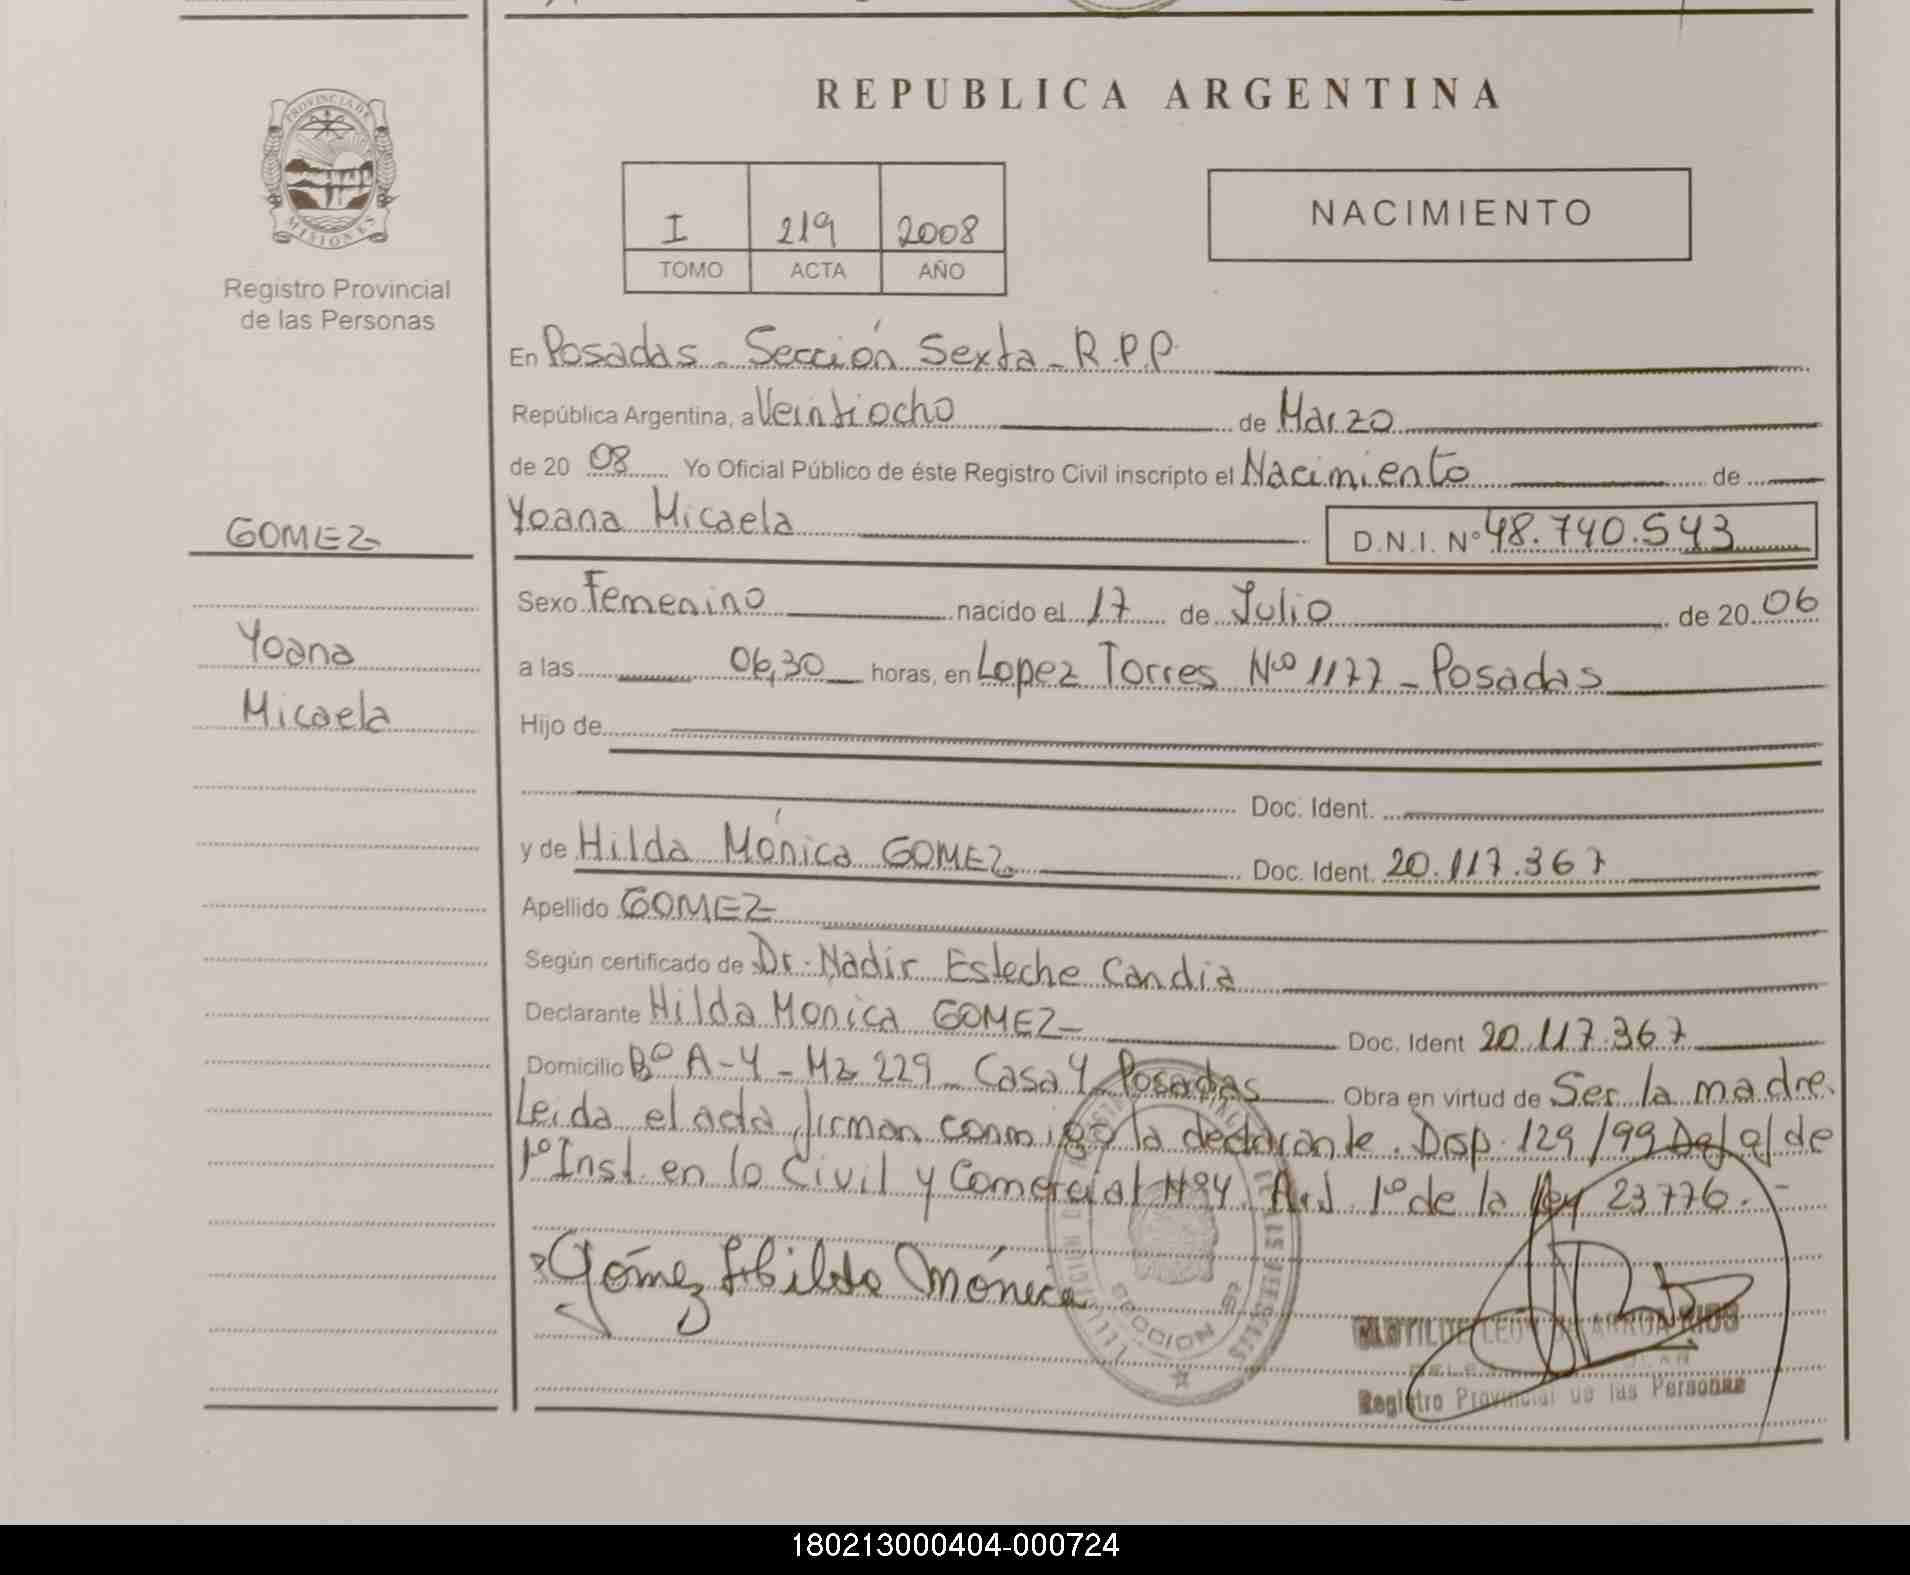 REPUBLICA ARGENTINA
PROVINCIA DE
MISIONES
Registro Provincial
de las Personas
I 219 2008
TOMO ACTA AÑO
NACIMIENTO
En Posadas - Sección Sexta - R.P.P.
República Argentina, a Veintiocho de Marzo
de 20 08 Yo Oficial Público de éste Registro Civil inscripto el Nacimiento de
GOMEZ
Yoana Micaela D.N.I. Nº 48.740.543
Sexo Femenino nacido el 17 de Julio de 20 06
Yoana
a las 06,30 horas, en Lopez Torres Nº 1177 - Posadas
Micaela
Hijo de
Doc. Ident.
y de Hilda Mónica GOMEZ Doc. Ident. 20.117.367
Apellido GOMEZ
Según certificado de Dr. Nadir Esteche Candia
Declarante Hilda Monica GOMEZ Doc. Ident 20.117.367
Domicilio Bº A-4 - Mz 229 - Casa 4 Posadas Obra en virtud de Ser la madre.
Leida el acta firman conmigo la declarante. Disp. 129/99 de
1º Inst. en lo Civil y Comercial Nº4. Art. 1º de la ley 23776.-
Gómez Hilda Mónica
SECCION
RIOS
Registro Provincial de las Personas
180213000404-000724